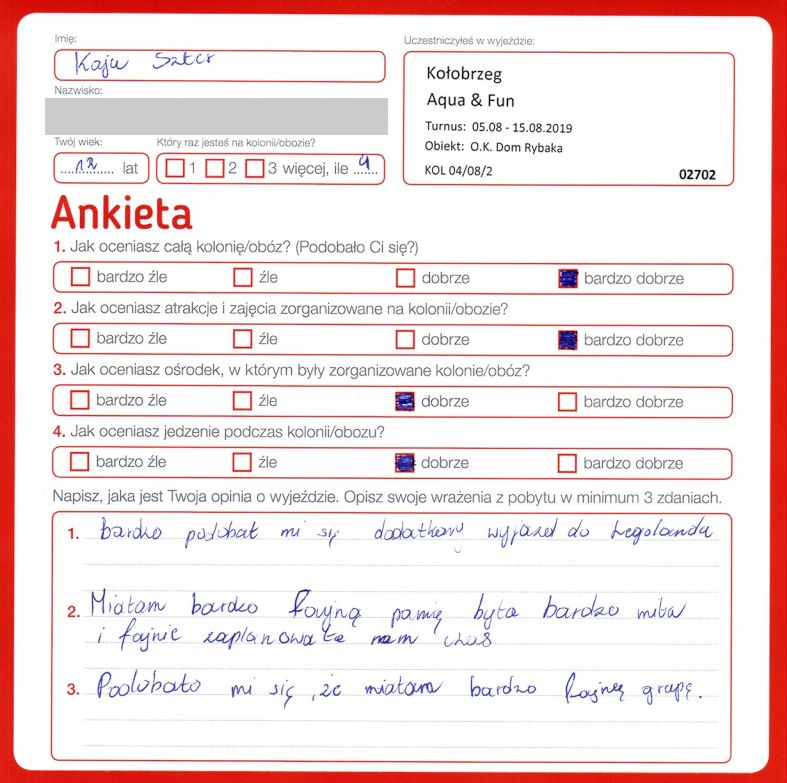 Imię:
Kaja
Nazwisko:
Twój wiek:
Który raz jesteś na kolonii/obozie?
12 lat
1 2 3 więcej, ile 4
Uczestniczyłeś w wyjeździe:
Kołobrzeg
Aqua & Fun
Turnus: 05.08 - 15.08.2019
Obiekt: O.K. Dom Rybaka
KOL 04/08/2 02702
Ankieta
1. Jak oceniasz całą kolonię/obóz? (Podobało Ci się?)
bardzo źle źle dobrze bardzo dobrze
2. Jak oceniasz atrakcje i zajęcia zorganizowane na kolonii/obozie?
bardzo źle źle dobrze bardzo dobrze
3. Jak oceniasz ośrodek, w którym były zorganizowane kolonie/obóz?
bardzo źle źle dobrze bardzo dobrze
4. Jak oceniasz jedzenie podczas kolonii/obozu?
bardzo źle źle dobrze bardzo dobrze
Napisz, jaka jest Twoja opinia o wyjeździe. Opisz swoje wrażenia z pobytu w minimum 3 zdaniach.
1. bardzo podobał mi się dodatkowy wyjazd do Legolandu
2. Miałam bardzo fajną panią była bardzo miła
i fajnie zaplanowała nam czas
3. Podobało mi się, że miałam bardzo fajną grupę.